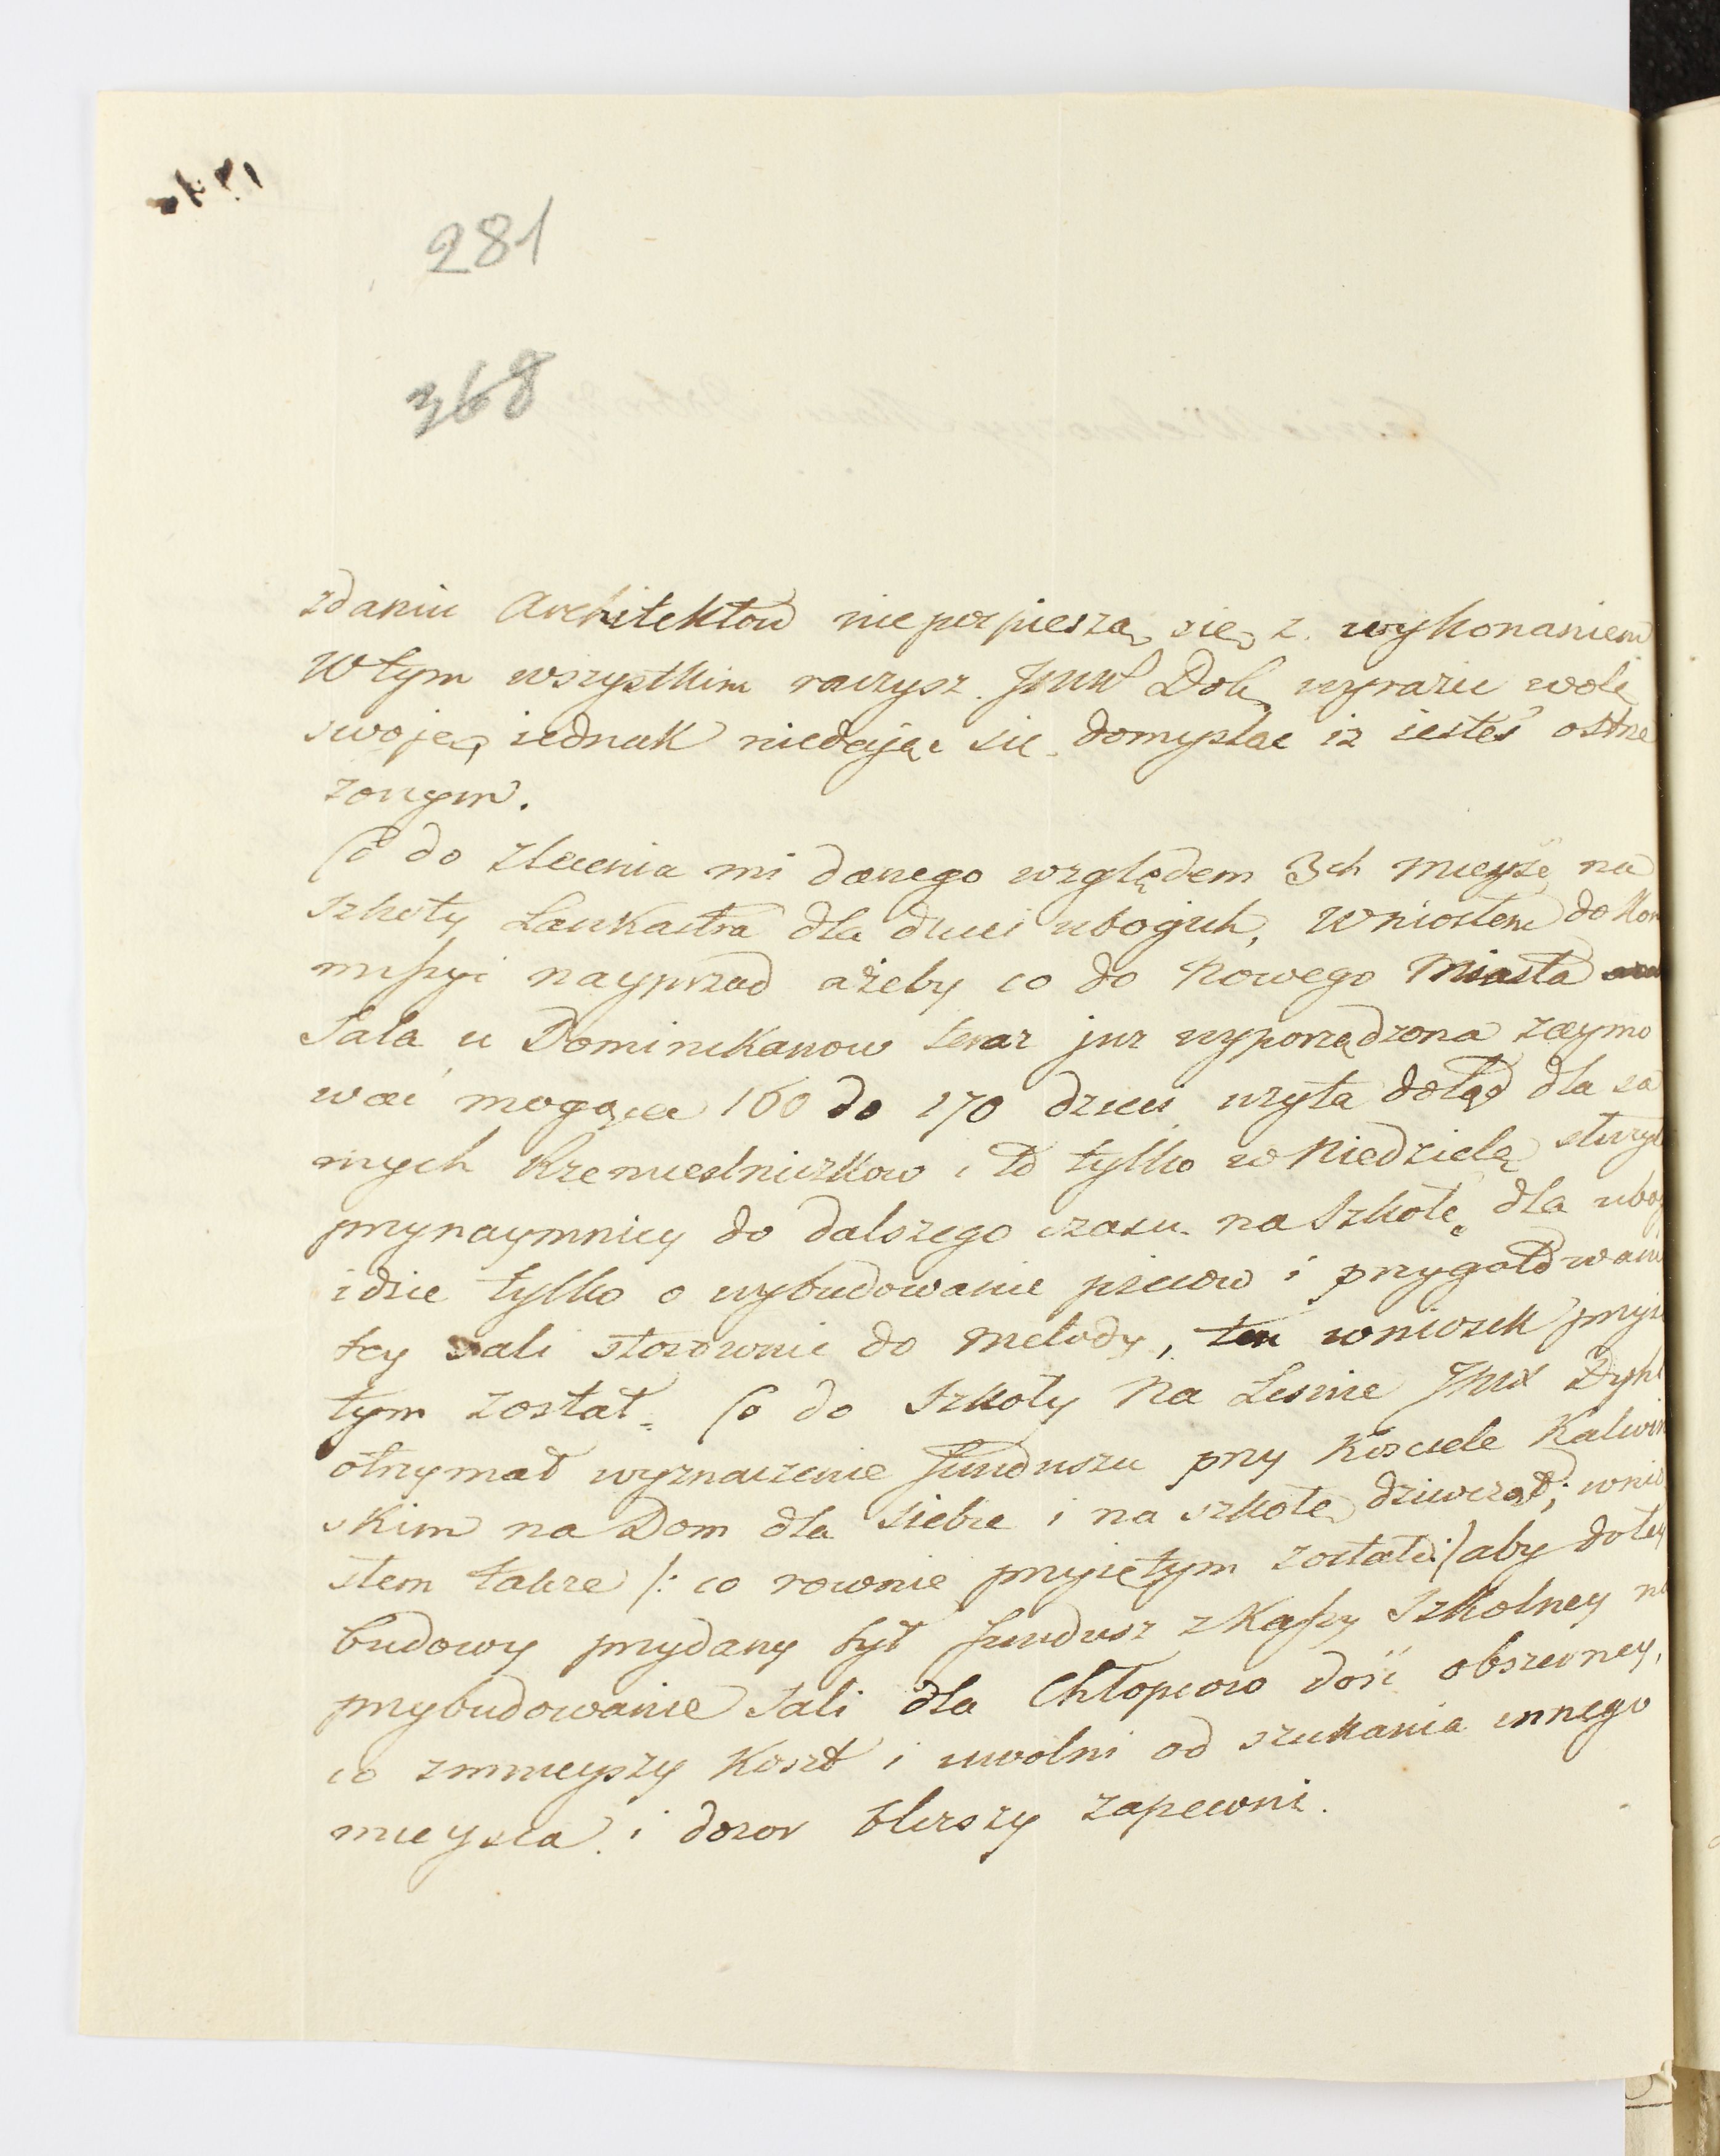 281
368
zdaniu Architektow niepospieszą się z wykonaniem
W tym wszystkim raczysz JWW Dob. wyrazic wolę
swoję, iednak niedając się domyslac iz iestes ostrze
zonym.
Co do zlecenia mi danego względem 3ch mieysc na
szkoły Lankastra dla dzieci ubogich, wniosłem do Kom
missyi nayprzod ażeby co do Nowego Miasta
Sala u Dominikanow teraz juz wyporządzona zaymo
wać mogąca 160 do 170 dzieci uzyta dotąd dla sa
mych Rzemieslniczkow i to tylko w Niedzielę słuzył
przynaymniey do dalszego czasu na Szkołę dla ubog
idzie tylko o wybudowanie piecow i przygotowani
tey sali stosownie do metody, ten wniosek przyię
tym został. Co do Szkoły na Lesnie JMX Dyhl
otrzymał wyznaczenie funduszu przy Kosciele Kalwin
skim na Dom dla siebie i na szkołę dziewcząt; wnio
słem takze /: co rownie przyiętym został :/ aby do tey
budowy przydany był fundusz z Kassy Szkolney na
przybudowanie Sali dla Chłopcow dość obszerney,
co zmnieyszy Koszt i uwolni od szukania innego
mieysca i dozor blizszy zapewni.